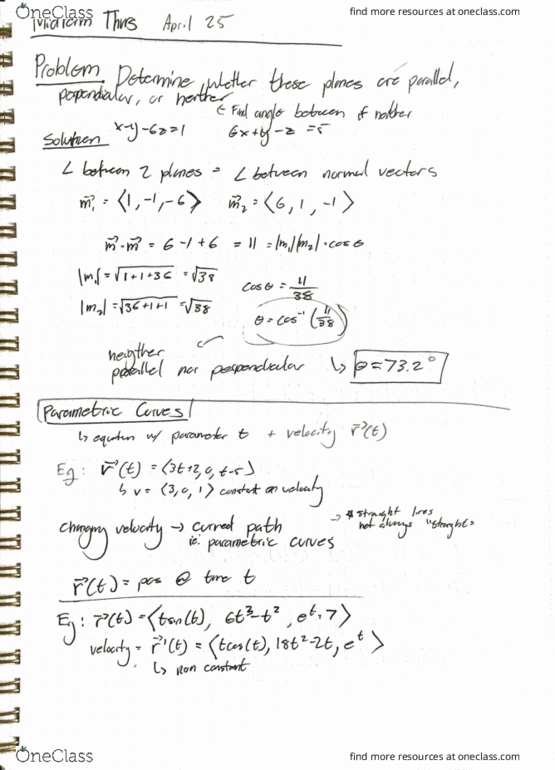 OneClass find more resources at oneclass.com
Midterm Thurs April 25
Problem Determine whether these planes are parallel,
perpendicular, or neither
↳ Find angle between if neither
Solution x-y-6z=1 6x+y-z=5
∠ between 2 planes = ∠ between normal vectors
m⃗₁ = ⟨1, -1, -6⟩ m⃗₂ = ⟨6, 1, -1⟩
m⃗·m⃗ = 6-1+6 = 11 = |m₁||m₂|·cosθ
|m₁| = √1+1+36 = √38 cosθ = 11/38
|m₂| = √36+1+1 = √38 θ = cos⁻¹(11/38)
neighther
parallel nor perpendicular ↳ θ = 73.2°
Parametric Curves
↳ equation w/ parameter t + velocity r⃗'(t)
Eg: r⃗(t) = ⟨3t+2, 0, t-5⟩
↳ v = ⟨3, 0, 1⟩ constant velocity
changing velocity → curved path → * straight lines
not always "straight"
ie: parametric curves
r⃗(t) = pos @ time t
Eg: r⃗(t) = ⟨tsin(t), 6t³-t², eᵗ+7⟩
velocity = r⃗'(t) = ⟨tcos(t), 18t²-2t, eᵗ⟩
↳ non constant
OneClass find more resources at oneclass.com